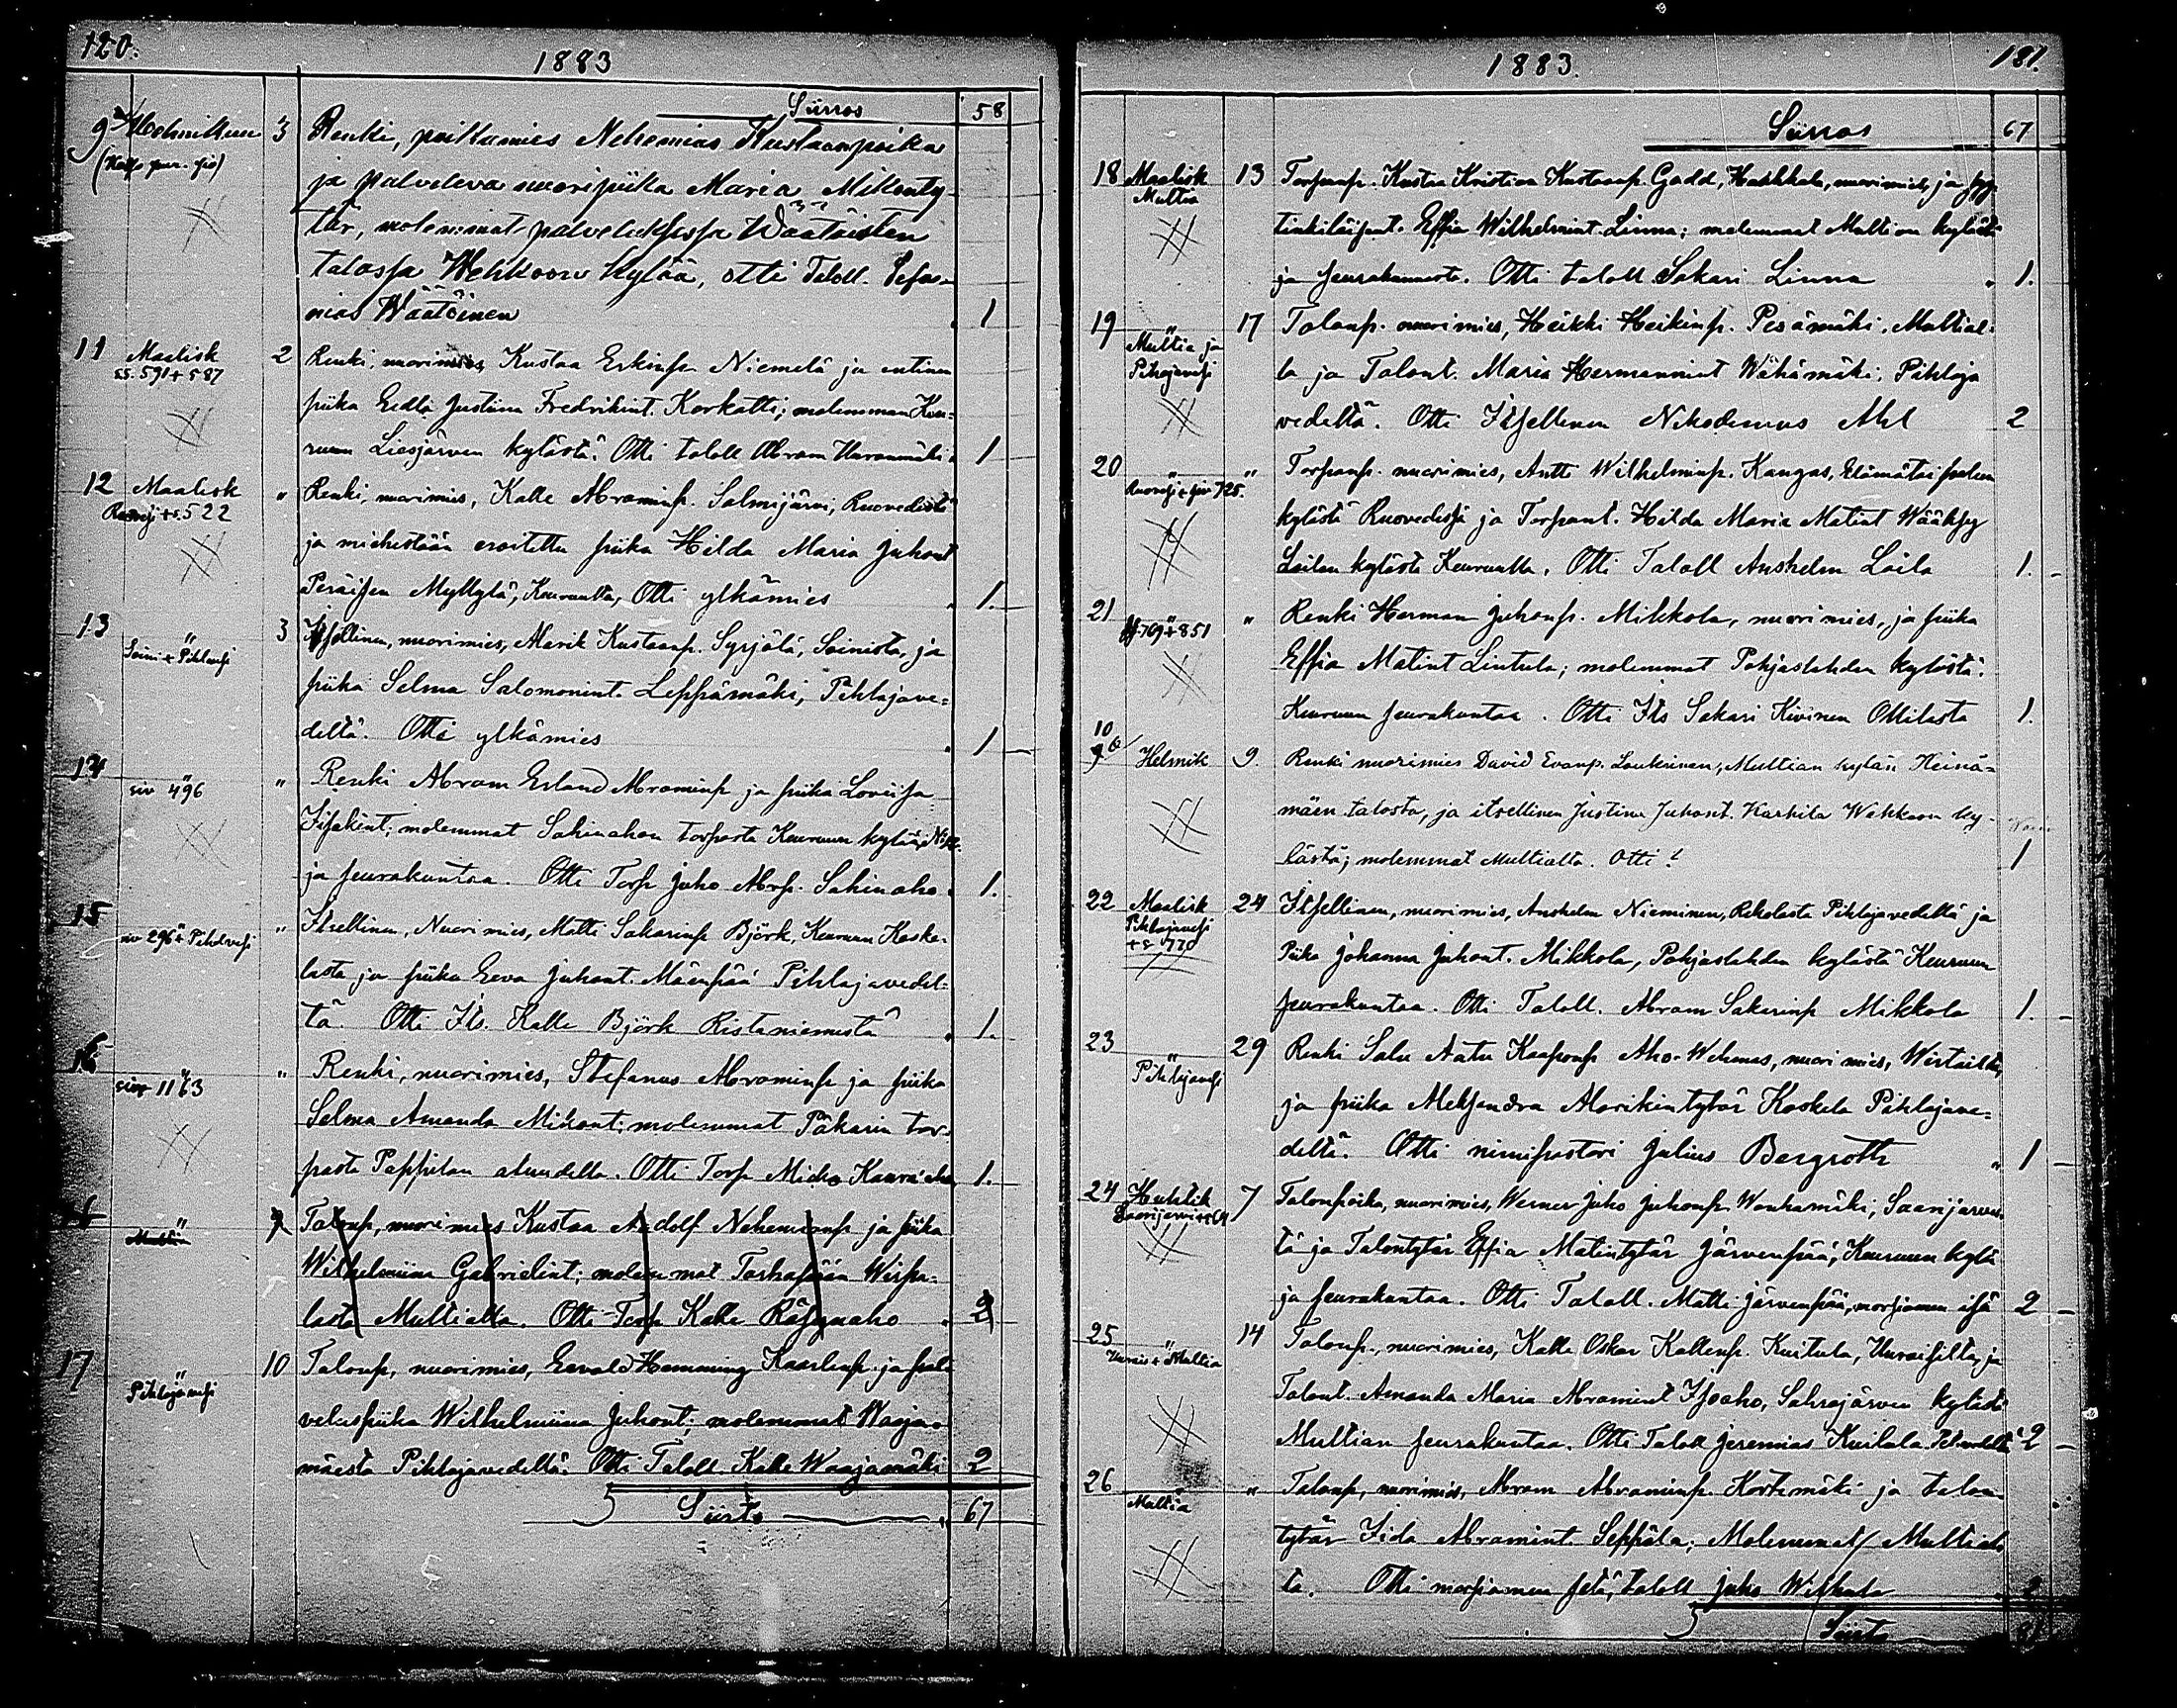 120.
1883
Siirros 58
9 Helmikuu 3 Renki, poikamies Nehemias Kustaanpoika
ja palveleva nuoripiika Maria Mikonty-
tär, molemmat palveluksessa Wäätäisten
talossa Wehkoon kylää, otti Taloll.
Wäätäinen 1
11 Maalisk 2 Renki, nuorimies, Kustaa Erkinp. Niemelä ja entinen
ss. 591 + 587
piika Eedla Justiina Fredrikint. Korkatti; molemman Keu-
ruun Liesjärven kylästä. Otti taloll Abram 1
12 Maalisk " Renki, nuorimies, Kalle Abraminp. Salmijärvi, Ruovedestä
+ s. 522
ja miehestään eroitettu piika Hilda Maria Juhont
Peräisen Myllylä, Keuruulta, Otti ylkämies 1.
13 " 3 Itsellinen, nuorimies, Maurik Kustaanp. Syrjälä, Soinista, ja
Soini + Pihlavesi
piika Selma Salomonint. Leppämäki, Pihlajave-
deltä. Otti ylkämies 1
14 " " Renki Abram Erland Abraminp ja piika Loviisa
siv 496
Iisakint; molemmat Sahinahon torpasta Keuruun kylää
ja seurakuntaa. Otti Torp Juho Abrp. Sahinaho. 1.
15 " " Itsellinen, Nuorimies, Matti Sakarinp Björk, Keuruun Koske-
siv 296 + Pihlvesi
lasta ja piika Eeva Juhont. Mäenpää Pihlajavedel-
tä. Otti Its. Kalle Björk Ristaniemestä 1.
16 " " Renki, nuorimies, Stefanus Abraminp ja piika
siv 1163
Selma Amanda Mikont; molemmat Päkärin tor-
pasta Pappilan aluudella. Otti Torp Micko 1.
" Talonp, nuorimies Kustaa Adolf Nehemianp ja piika
Multia
Wilhelmiina Gabrielint; molemmat Tarhapään
lasta Multialta. Otti Torp Kalle Räsynaho 2
17 " 10 Talonp, nuorimies, Eevald Hemming Kaarlenp. ja pal-
Pihlajavesi
veluspiika Wilhelmiina Juhont; molemmat Waaja-
mäestä Pihlajavedeltä. Otti Taloll. Kalle Waajamäki 2
Siirto 67
1883.
181.
Siirros 67
18 Maalisk 13 Torpanp. Kustaa Kristian Kustaanp. Gadd, Hakkala, nuorimies, ja
Multia
tinkiläisent. Effia Wilhelmint. Linna; molemmat Multian kylästä
ja seurakunnasta. Otti taloll Sakari Linna 1.
19 " 17 Talonp. nuorimies, Heikki Heikinp. Pesämäki, Multial-
Multia ja
Pihlajavesi
ta ja Talont. Maria Hermannint Wähämäki, Pihlaja
vedeltä. Otti Itsellinen Nikodemus Ahl 2
20 " " Torpanp. nuorimies, Antti Wilhelminp. Kangas,
Ruovesi + siv 725.
kylästä Ruovedessä ja Torpant. Hilda Maria Matint Wääksy
Loilan kylästä Keuruulla. Otti Taloll Anshelm Loila 1.
21 " " Renki Herman Juhonp. Mikkola, nuorimies, ja piika
ss 769 + 851
Effia Matint Lintula; molemmat Pohjaslahden kylästä
Keuruun seurakuntaa. Otti Its Sakari Kivinen Ottilasta 1.
10
Helmik 9. Renki nuorimies David Evanp. Loukiainen, Multian kylän Heinä-
mäen talosta, ja itsellinen Justina Juhont. Karhila Wehkoon ky-
lästä; molemmat Multialta. Otti ? 1
22 Maalisk 24 Itsellinen, nuorimies, Anshelm Nieminen, Rekolasta Pihlajavedeltä ja
Pihlajavesi
+ s 770
Piika Johanna Juhont. Mikkola, Pohjaslahden kylästä Keuruun
seurakuntaa. Otti Taloll. Abram Sakarinp Mikkola 1.
23 " 29 Renki Salu Aatu Kaaponp Aho-Wehmas, nuorimies,
Pihlajavesi
ja piika Aleksandra Maurikintytär Koskela Pihlajave-
deltä. Otti nimipastori Julius Bergroth 1
24 Huhtik 7 Talonpoika, nuorimies, Werner Juho Juhonp. Wanhamäki, Saarijärves-
Saarijärvi +
tä ja Talontytär Effia Matintytär Järvenpää, Keuruun kylä
ja seurakuntaa. Otti Taloll. Matti Järvenpää, morsiamen isä 2
25 " 14 Talonp., nuorimies, Kalle Oskar Kallenp. Kuitula, Uuraisilta, ja
Uurais + Multia
Talont. Amanda Maria Abramint Isoaho, Sahrajärven kylästä
Multian seurakuntaa. Otti Taloll Jeremias 2
26 " " Talonp, nuorimies, Abram Abraminp. Kortemäki ja talon-
Multia
tytär Iida Abramint. Seppälä; Molemmat Multial-
ta. Otti morsiamen setä, taloll Juho 2
Siirto